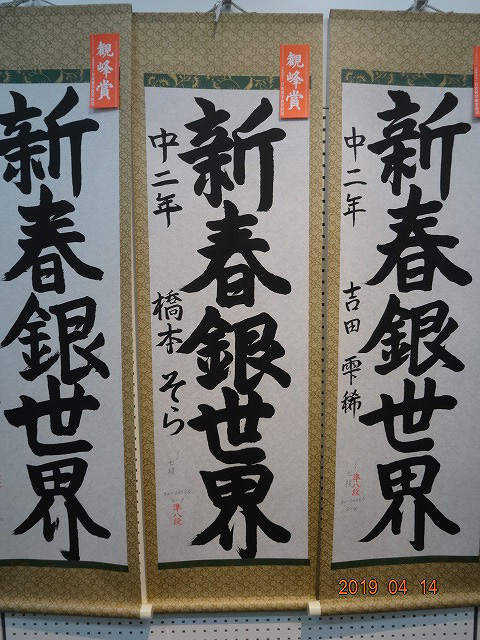 観峰賞
新春銀世界
観峰賞
新春銀世界
中二年 橋本そら
七段
準八段
新春銀世界
中二年 吉田雫稀
七段
準八段
2019 04 14